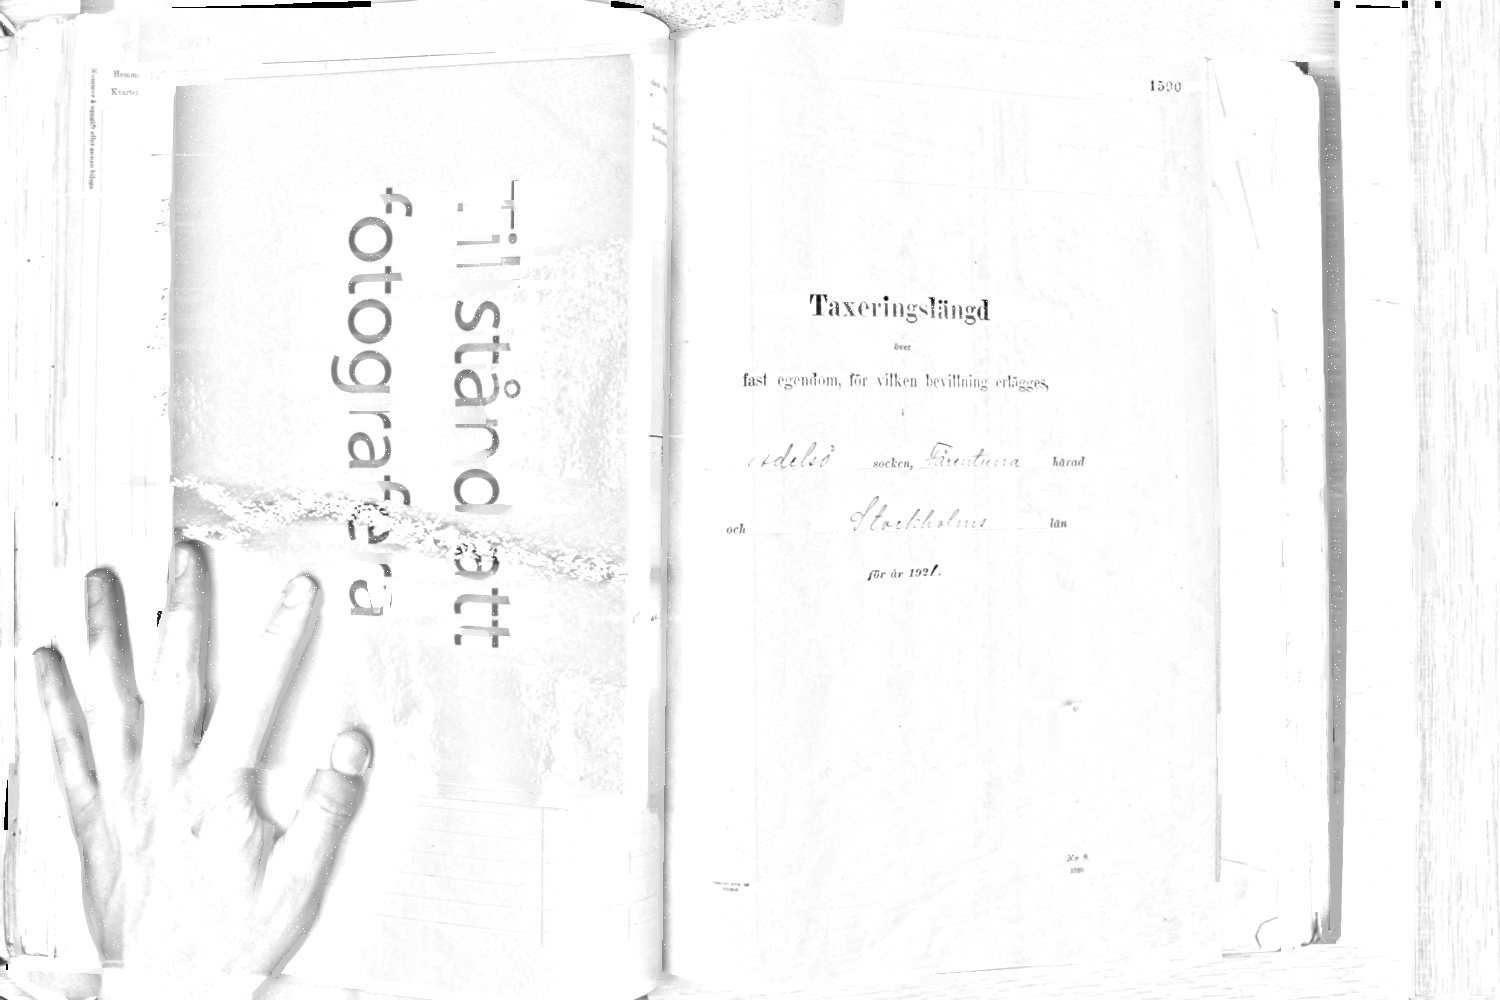 Nummer å uppgift eller annan bilaga
Tillstånd att
fotografera
1590
Taxeringslängd
över
fast egendom, för vilken bevillning erlägges,
i
Adelsö socken, Färentuna härad
och Stockholms län
för år 1921.